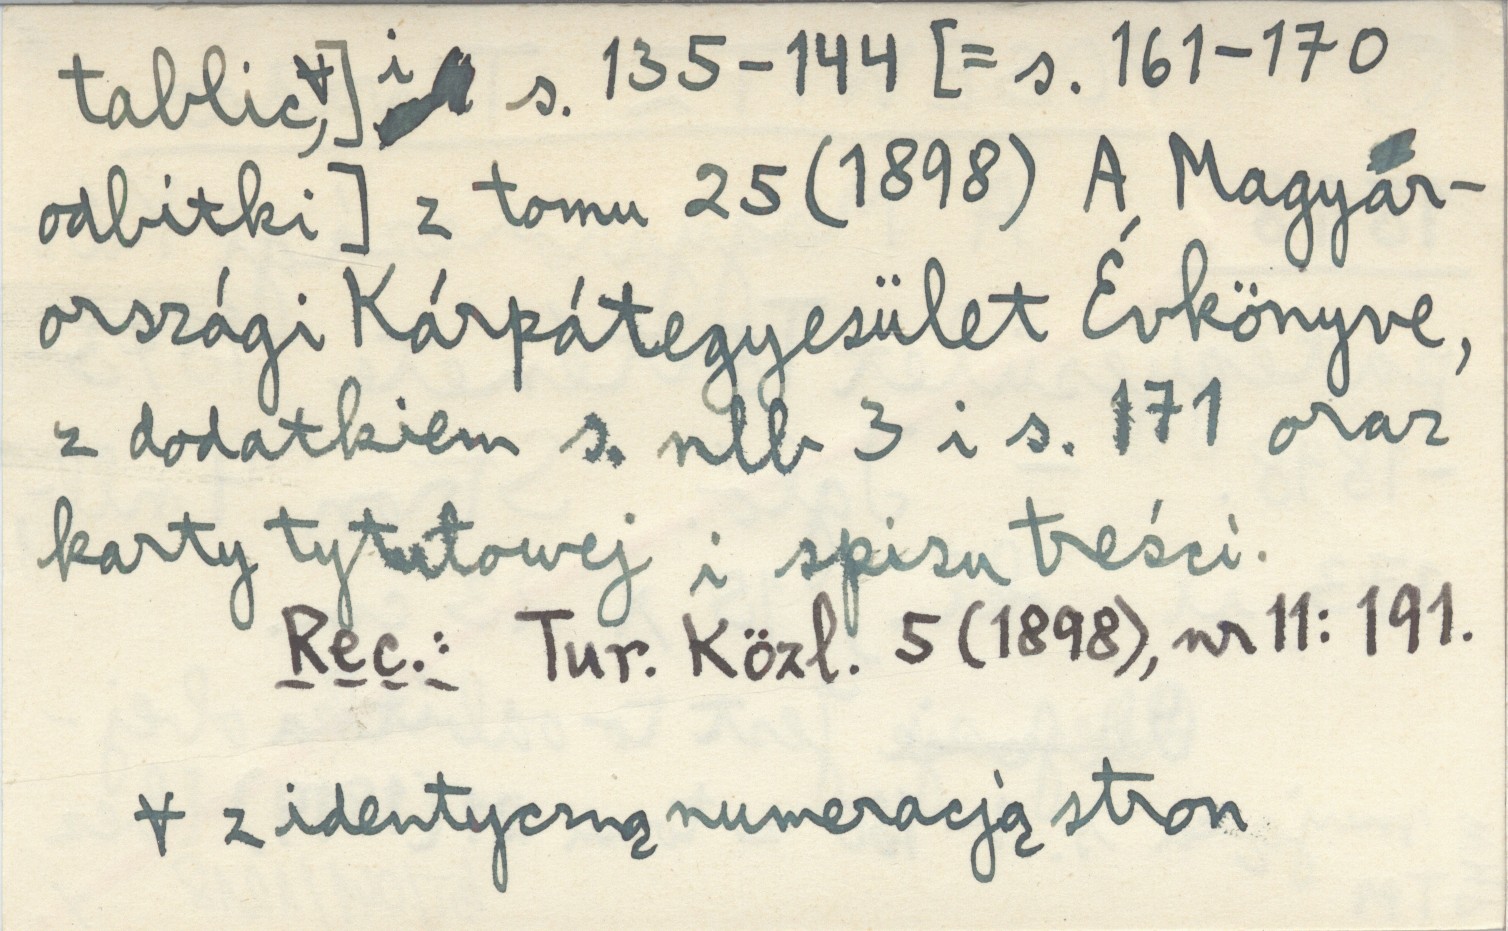 tablic,∀] i s. 135-144 [= s. 161-170
odbitki] z tomu 25 (1898) A Magyar-
országi Kárpátegyesület Évkönyve,
z dodatkiem s. nlb 3 i s. 171 oraz
karty tytułowej i spisu treści.
Rec.: Tur. Közl. 5 (1898), nr 11: 191.
∀ z identyczną numeracją stron